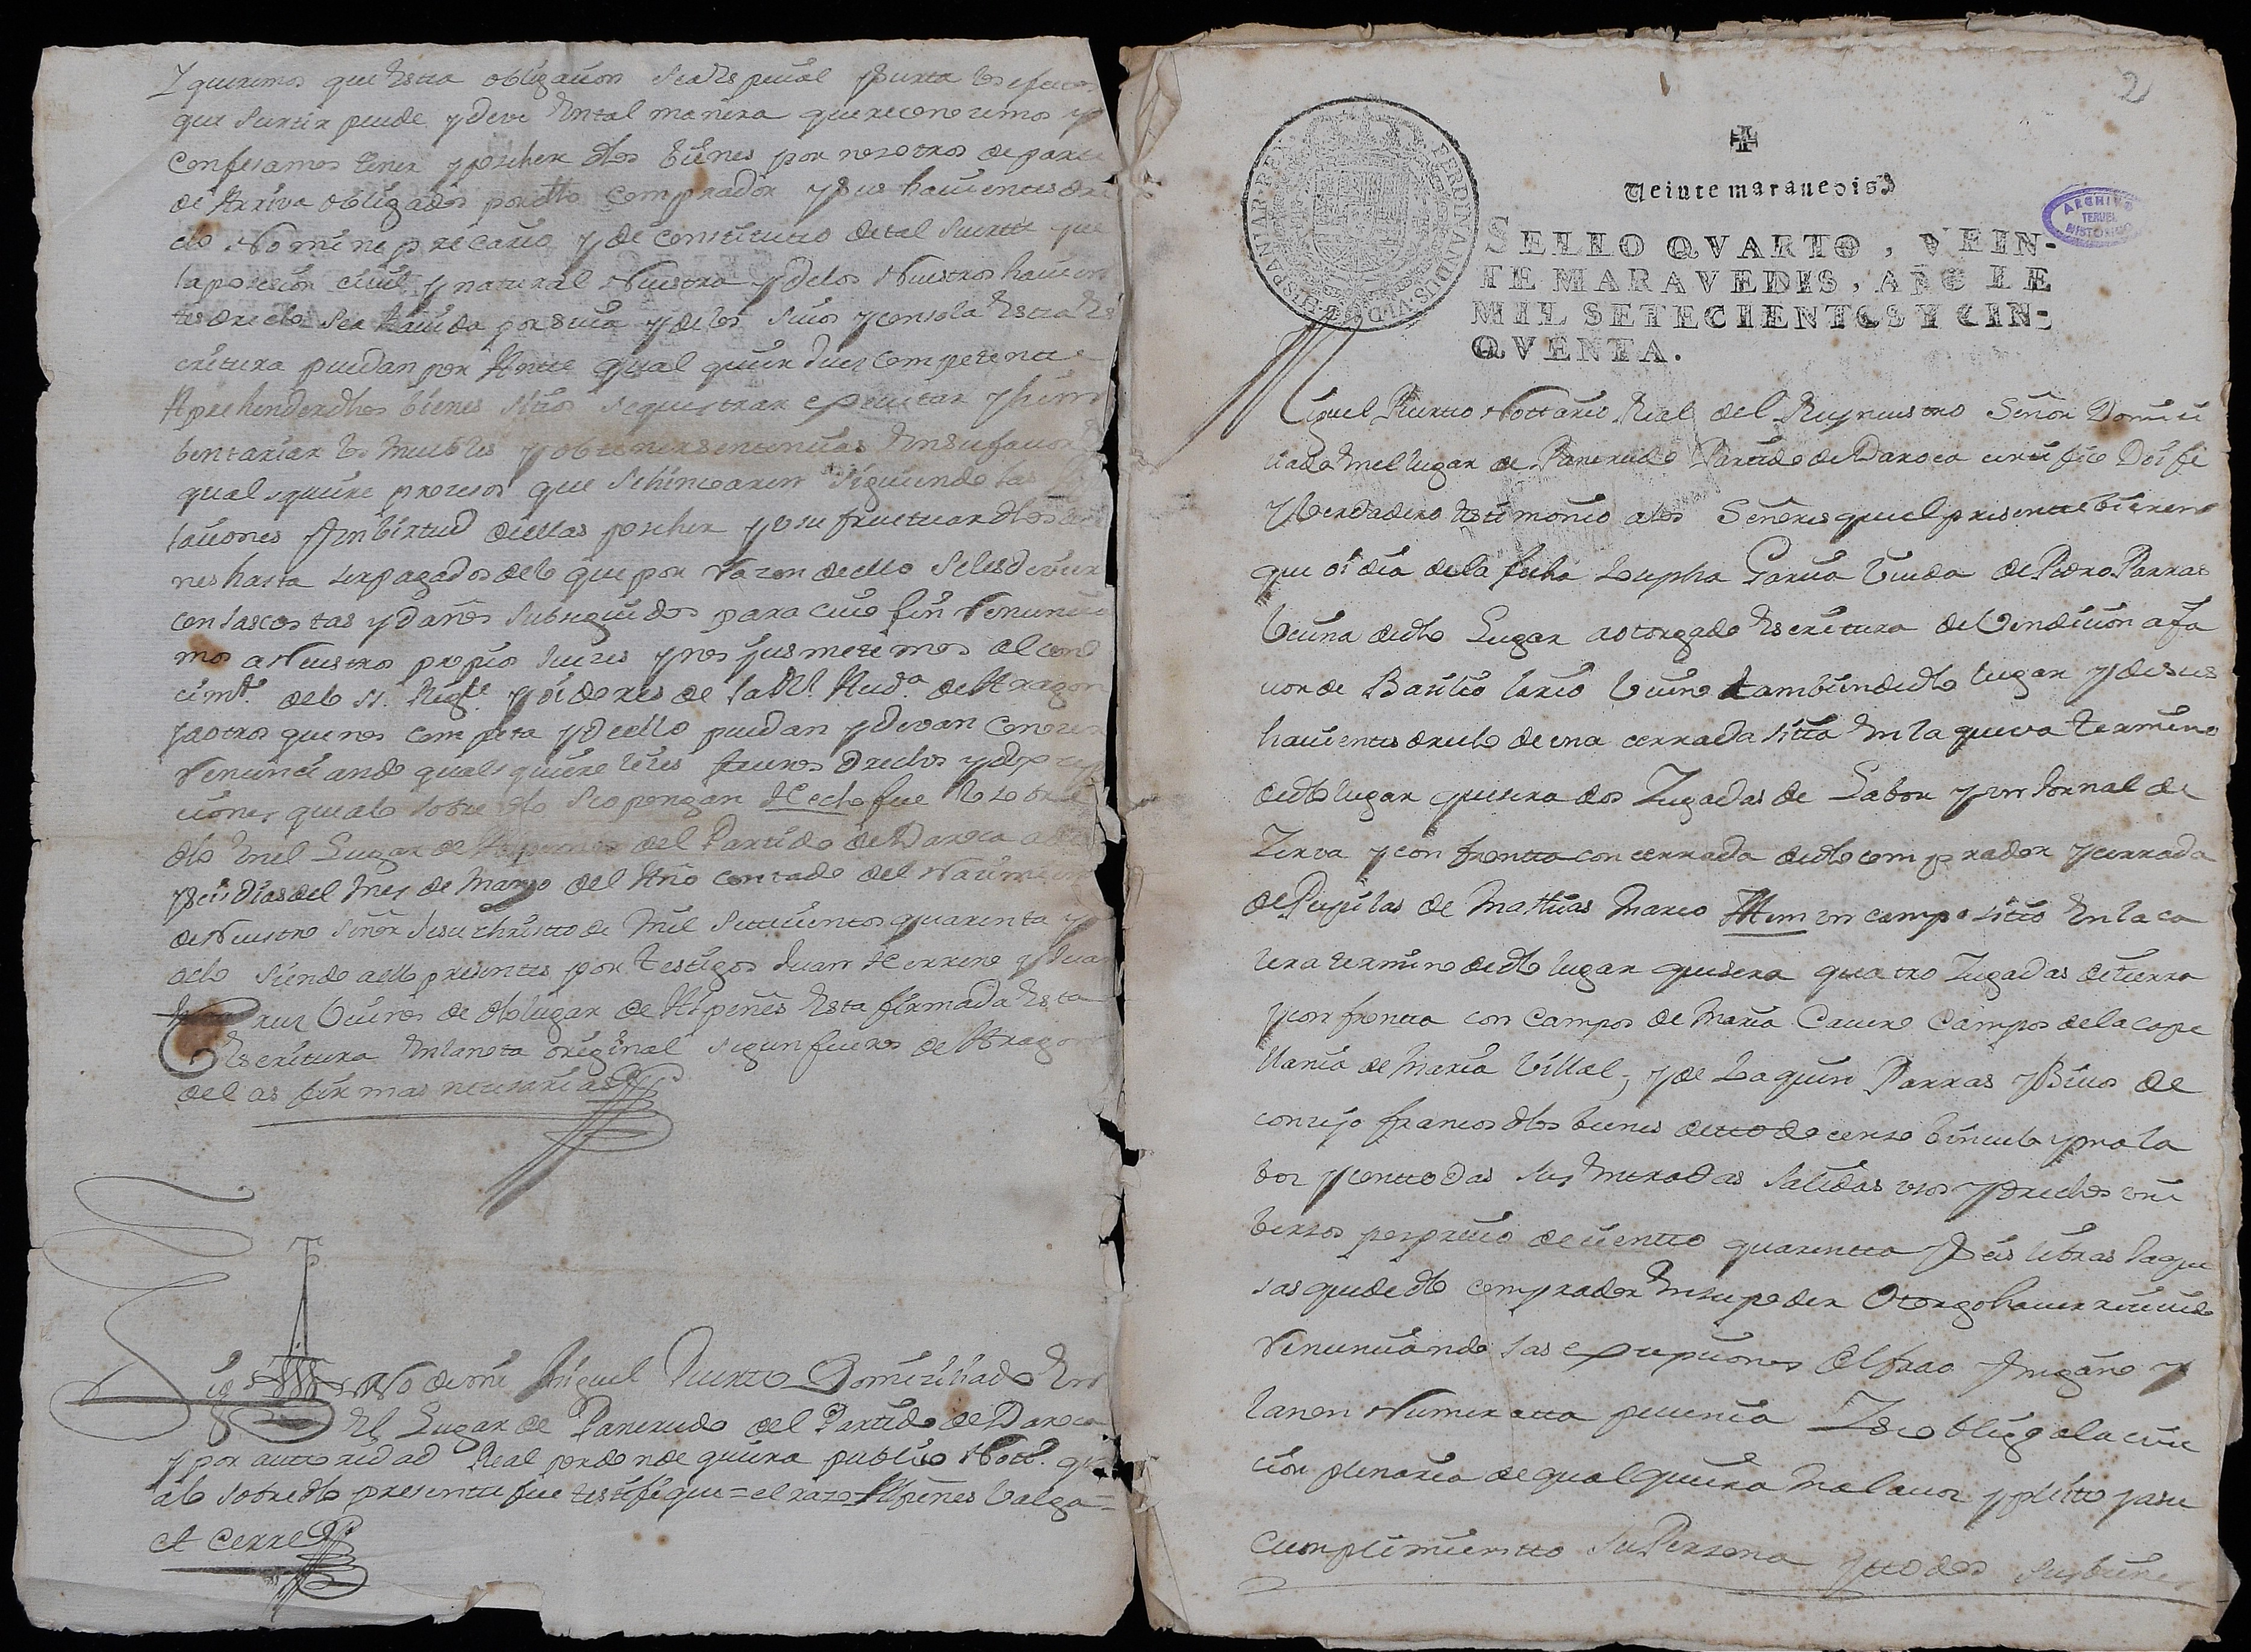 Y queremos que Esta obligacion sea Especial y Surta los efectos
que Surtir puede y deve En tal manera que reconocemos y
Confesamos tener y poseher dhos bienes por nosotros de parte
de Arriva obligados por dho comprador y Sus havientes dre
cho Nomine precario y de constituto de tal Suerte que
la posecion civil y natural Nuestra y de los Nuestros havien
tes drecho Sea havida por Suia y de los Suios y con sola Esta Es
critura puedan por Ante qual quier Juez Competente
Aprehender dhos bienes sitios sequestrar executar y him
bentariar los muebles y obtener sentencias En su favor En
quales quiere procesos que Se hintentaren Siguiendo las
laciones y En birtud de ellas poseher y usufructuar dhos bie
nes hasta ser pagados de lo que por Razon de ello Se les deviere
con las costas y daños Subseguidos para cuio fin Renuncia
mos a Nuestros propios Juezes y nos jusmetemos al cono
cimto. de lo SS. Regte. y oidores de la Rl. Auda. de Aragon
y a otros que nos competa y de ello puedan y devan Conozer
Renunciando quales quiere leies fueros Drechos y dispossi
ciones que a lo sobre dho Se opongan Hecho fue lo sobre
dho En el Lugar de Alpeñes del Partido de Daroca a
y seis Dias del Mes de Marzo del Año contado del Nacimiento
de Nuestro Señor Jesu christto de Mil Settecientos quarenta y
ocho Siendo a ello presentes por testigos Juan Herrero y Juan
Cruz Vecinos de dho lugar de Alpeñes Esta firmada Esta
Escritura En la nota original segun fueros de Aragon
de las firmas necesarias
Sig No de mi Miguel Rurto Domiziliado En
El Lugar de Pancrudo del Partido de Daroca
y por auttoridad Real por donde quiera publico Notto. que
a lo sobre dho presente fue testifique = el razo Alpeñes Valga =
et cerre
2
Veinte maravedis
HISPANIAR. REX FERDINANDUS VI D G
ARCHIVO
TERUEL
HISTORICO
SELLO QVARTO, VEIN-
TE MARAVEDIS, AÑO DE
MIL SETECIENTOS Y CIN-
QVENTA.
Miguel Rurto Nottario Real del Rey nuestro Señor Domici
liado En el lugar de Pancrudo Partido de Daroca certifico Doi fe
y Verdadero testimonio a los Señores que el presente bieren
que oi dia de la fecha Josepha Garcia Viuda de Pedro Parras
Vecina de dho Lugar a otorgado Escritura de Vendicion a fa
vor de Basilio Iario Vecino tambien de dho lugar y de sus
havientes drecho de una cerrada sitia En la queva termino
de dho lugar que sera dos Jugadas de Labor y un Jornal de
Zerva y confrontta con cerrada de dho comprador y cerrada
de Pupilas de Mathias Marco Ittem un campo sitio En la ca
lera termino de dho lugar que sera quatro Jugadas de tierra
y confrontta con Campos de Maria Cavero Campos de la cape
llania de Maria Villal, y de Joaquin Parras y Bico de
consejo francos dhos bienes de ttodo censo binculo y mala
boz y con ttodas sus Entradas Salidas usos y drechos uni
bersos por precio de cientto quarentta y seis libras Jaque
sas que de dho comprador En su poder Otorgo haver recivido
Renunciando las excepciones del frao y Engaño y
la non Numeratta pecunia Y Se obligo a la evic
cion plenaria de qualquiera mala voz y pleitto y a su
cumplimientto Su Persona y ttodos Sus bienes